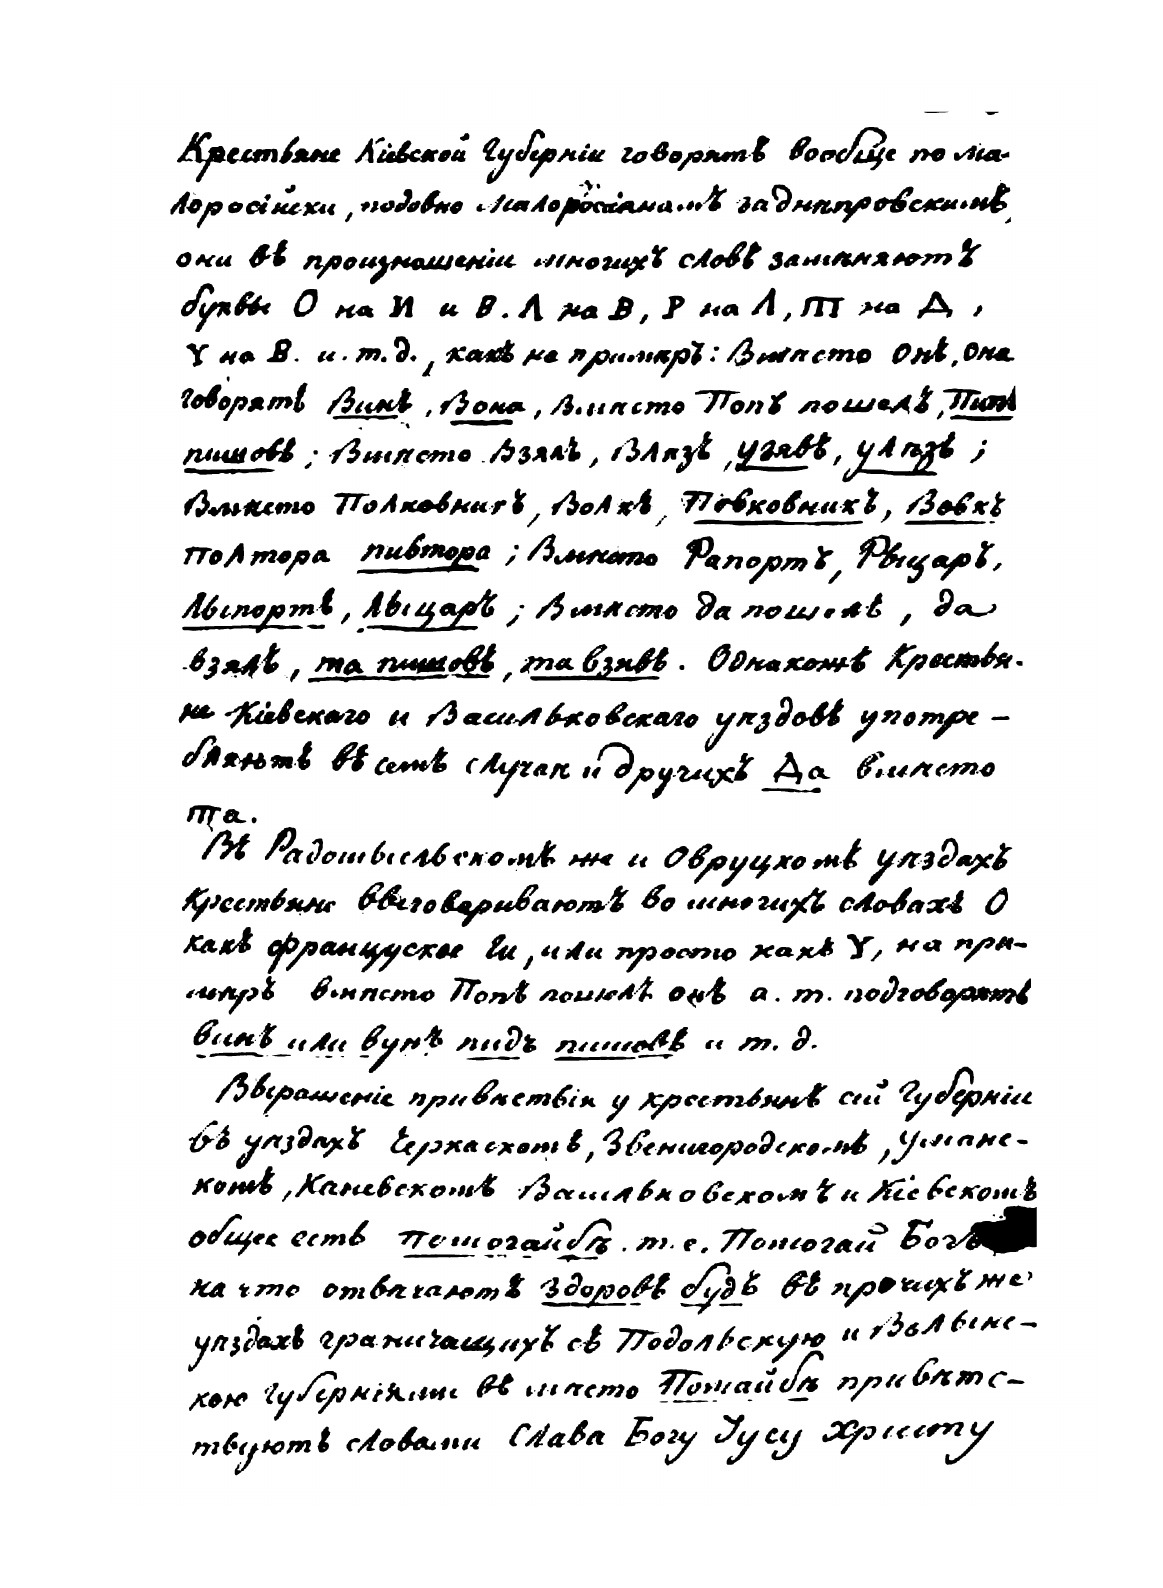 Крестьяне Кіевской Губерніи говорятъ вообще по ма-
лоросійски, подобно малоросіянамъ заднѣпровскимъ,
они въ произношеніи многихъ словъ замѣняютъ
буквы О на И и В. Л на В, Р на Л, Т на Д,
У на В. и. т. д., какъ на примѣръ: Вмѣсто Онъ, Она
говорятъ Винъ, Вона, вмѣсто Попъ пошелъ, Пипъ
пишовъ; Вмѣсто Взялъ, Влязъ, узявъ, улѣзъ;
Вмѣсто Полковникъ, Волкъ, Повковникъ, Вовкъ
полтора пивтора; Вмѣсто Рапортъ, Рыцаръ,
Лыпортъ, Лыцаръ; Вмѣсто да пошелъ, да
взялъ, та пишовъ, та взявъ. Однакожъ Крестья-
не Кіевскаго и Васильковскаго уѣздовъ употре-
бляютъ въ семъ случаѣ и другихъ Да вмѣсто
та.
Въ Радомысльскомъ же и Овруцкомъ уѣздахъ
Крестьяне выговариваютъ во многихъ словахъ О
какъ французское Eu, или просто какъ У, на при-
мѣръ вмѣсто Попъ пошелъ онъ а. т. под говорятъ
винъ или вунъ пидъ пишовъ и т. д.
Выраженіе привѣтствія у крестьянъ сей Губерніи
въ уѣздахъ Черкаскомъ, Звенигородскомъ, Уманс-
комъ, Каневскомъ Васильковскомъ и Кіевскомъ
общее есть Помогайбѣ. т. е. Помогай Богъ
на что отвѣчаютъ Здоровъ будъ въ прочихъ же
уѣздахъ граничащихъ съ Подольскую и Волынс-
кою Губерніями въ мѣсто Помайбѣ привѣтс-
твуютъ словами Слава Богу Іусу Христу